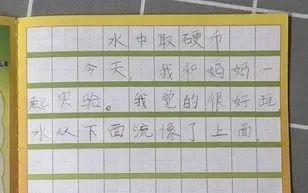 水中取硬币
今天，我和妈妈一
起实验。我觉的很好玩
水从下面流像了上面